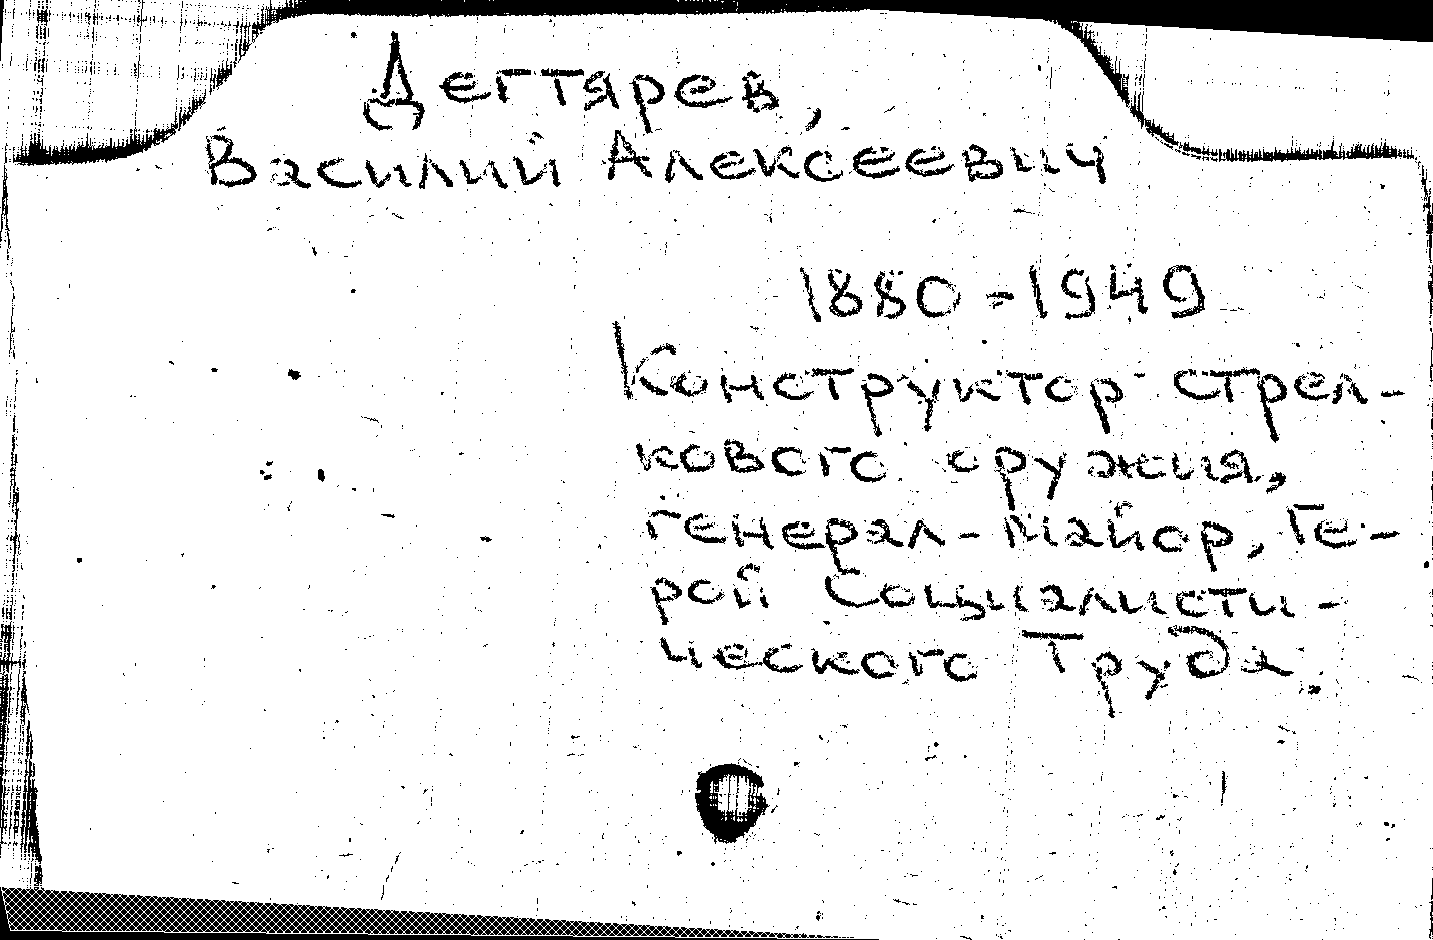 Дегтярев,
Василий Алексеевич
1880-1949
Конструктор стрел-
кового оружия,
генерал-майор, Ге-
рой Социалисти-
ческого Труда.